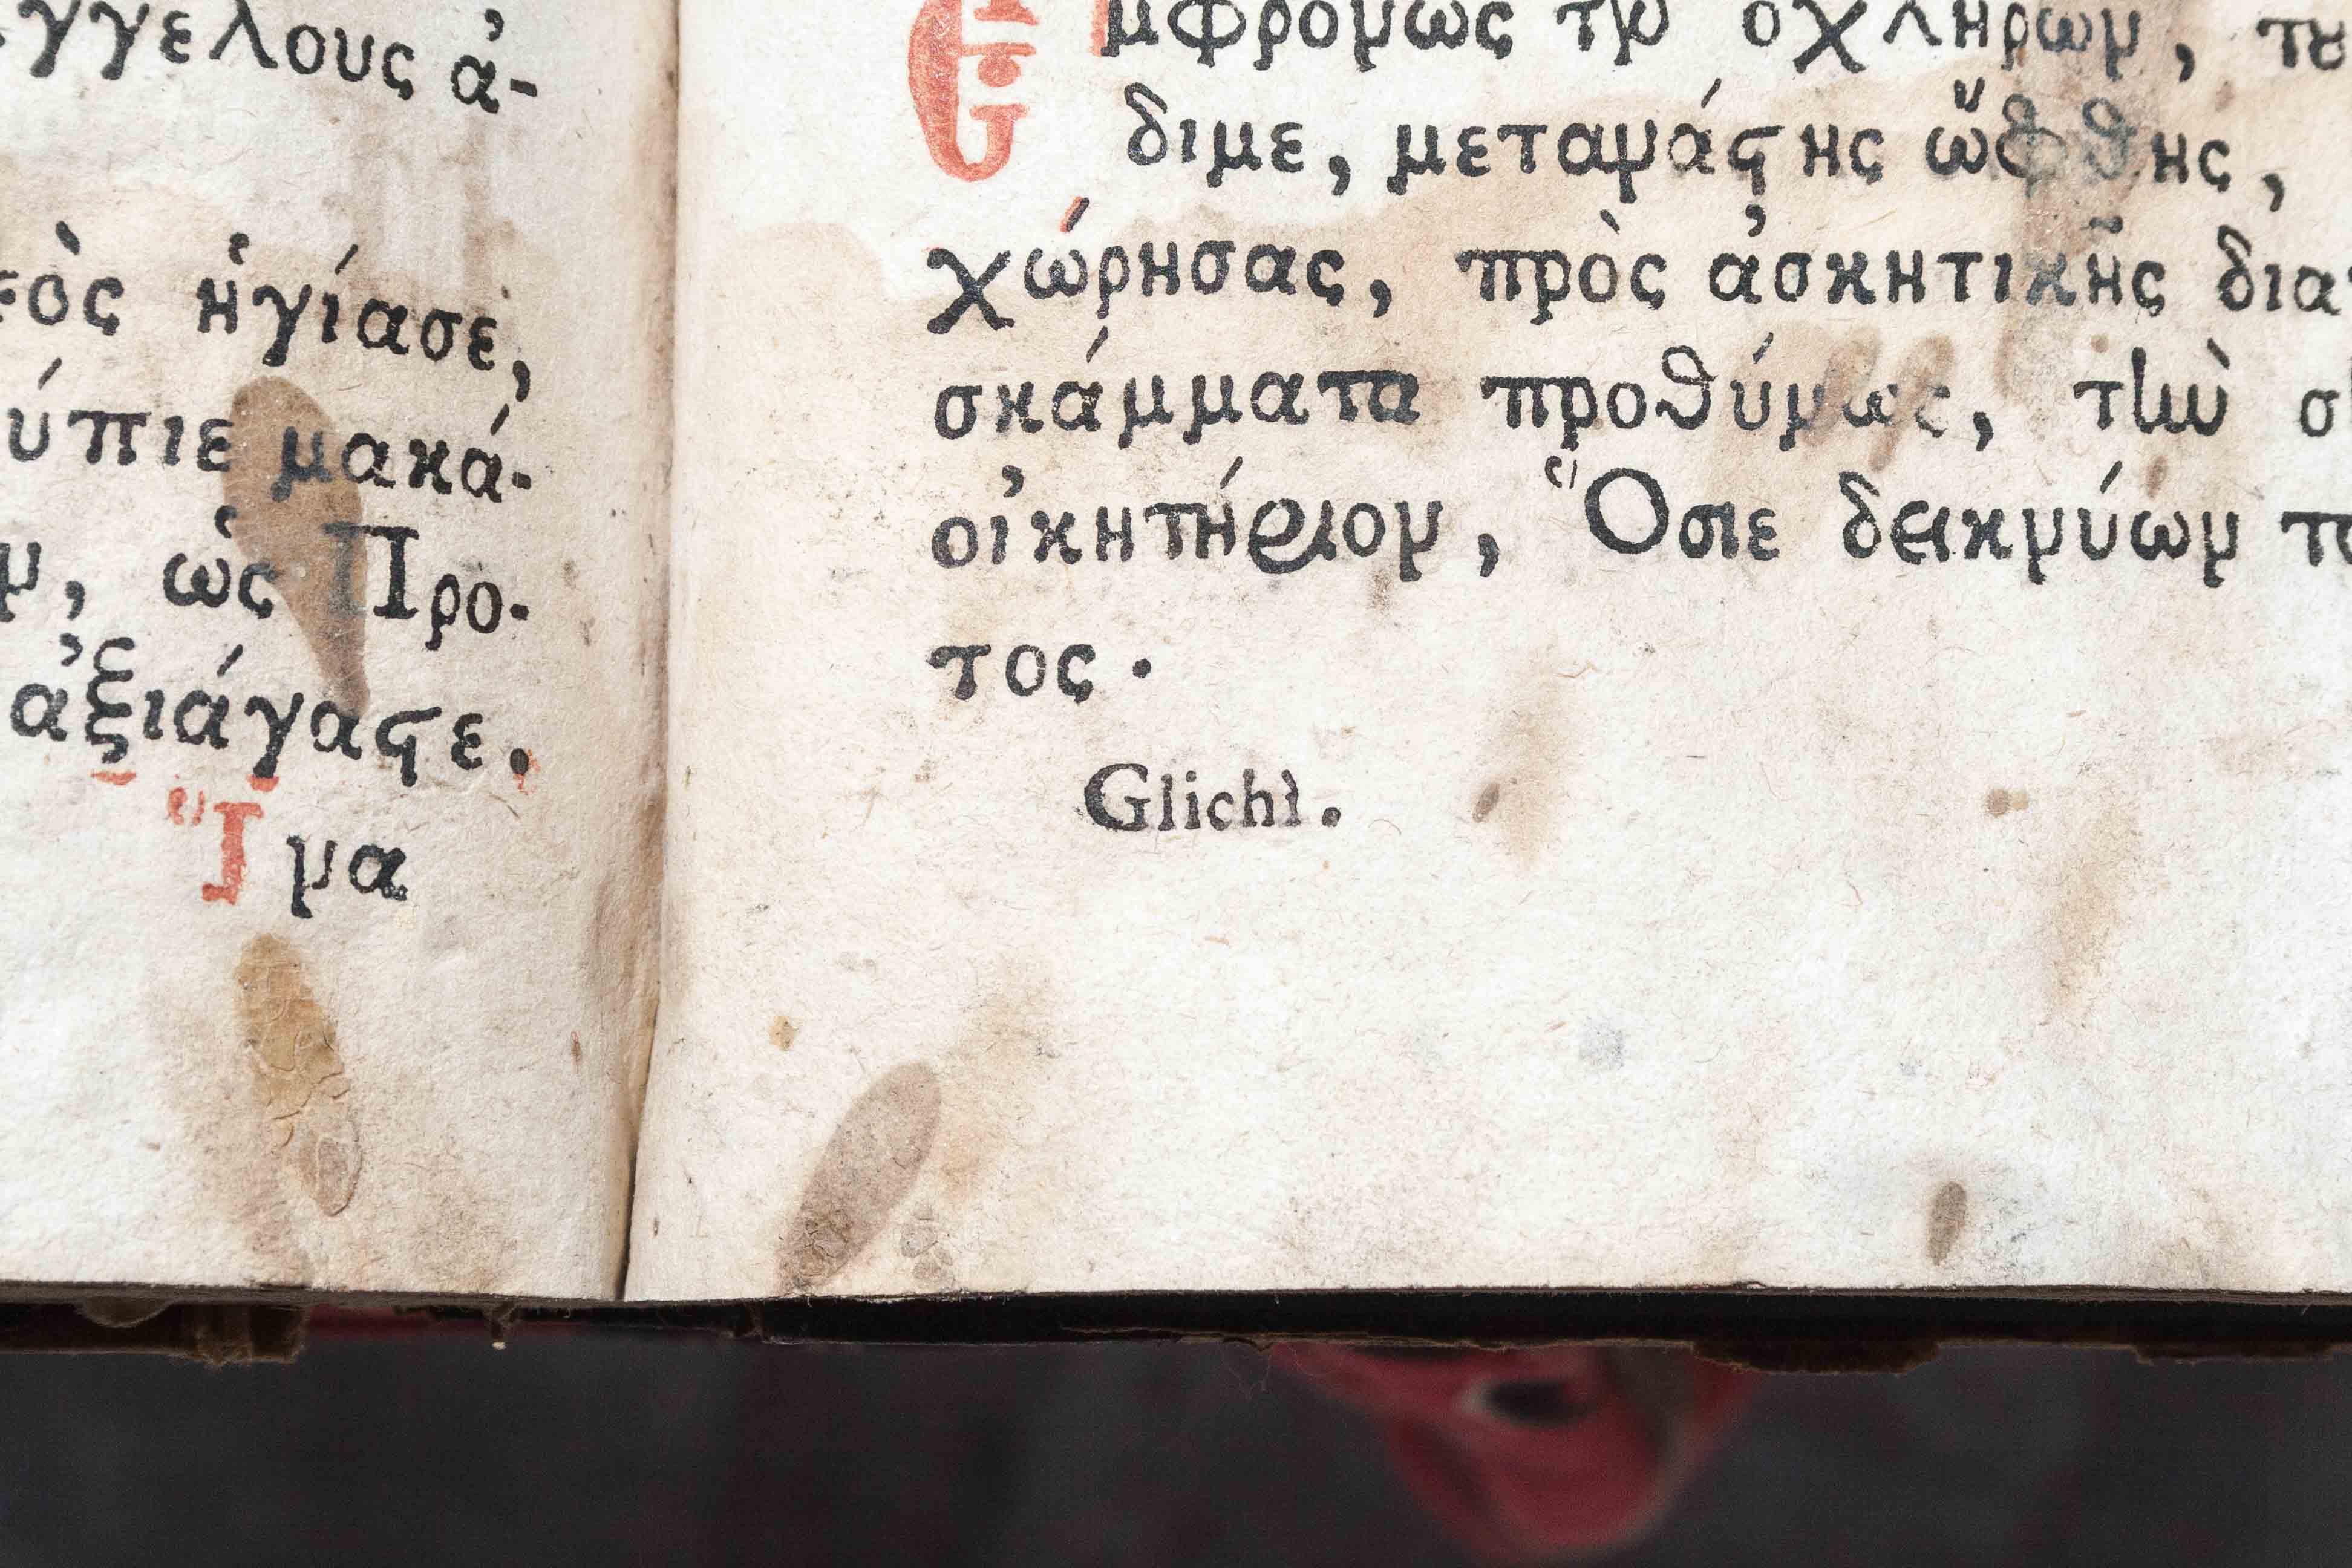 γγελους ἀ-
εὸς ἡγίασε,
ύπιε μακά-
ν, ὡς Προ-
ἀξιάγαστε.
Ἵνα
Ἐμφρόνως τῶν ὀχληρῶν,
διμε, μετανάστης ὤφθης,
χώρησας, πρὸς ἀσκητικῆς δια
σκάμματα προθύμως, τὴν σ
οἰκητήριον, Ὅσιε δεικνύων το
τος.
Glichì.